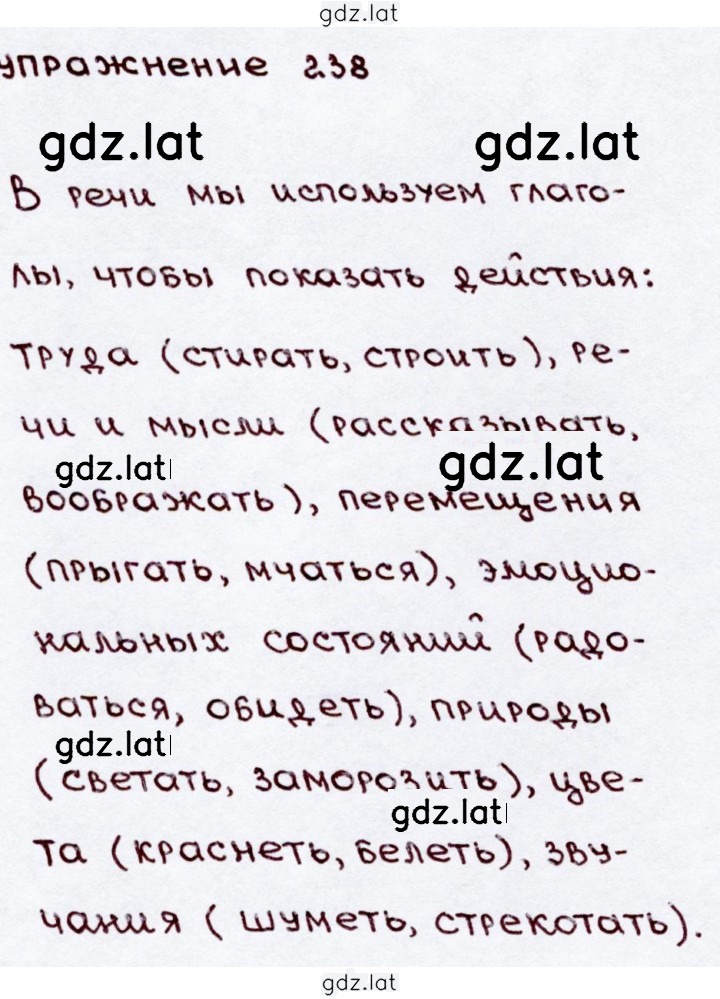 gdz.lat
упражнение 238
gdz.lat gdz.lat
В речи мы используем глаго-
лы, чтобы показать действия:
труда (стирать, строить), ре-
чи и мысли (рассказывать,
gdz.lat gdz.lat
воображать), перемещения
(прыгать, мчаться), эмоцио-
нальных состояний (радо-
ваться, обидеть), природы
gdz.lat
(светать, заморозить), цве-
gdz.lat
та (краснеть, белеть), зву-
чания (шуметь, стрекотать).
gdz.lat